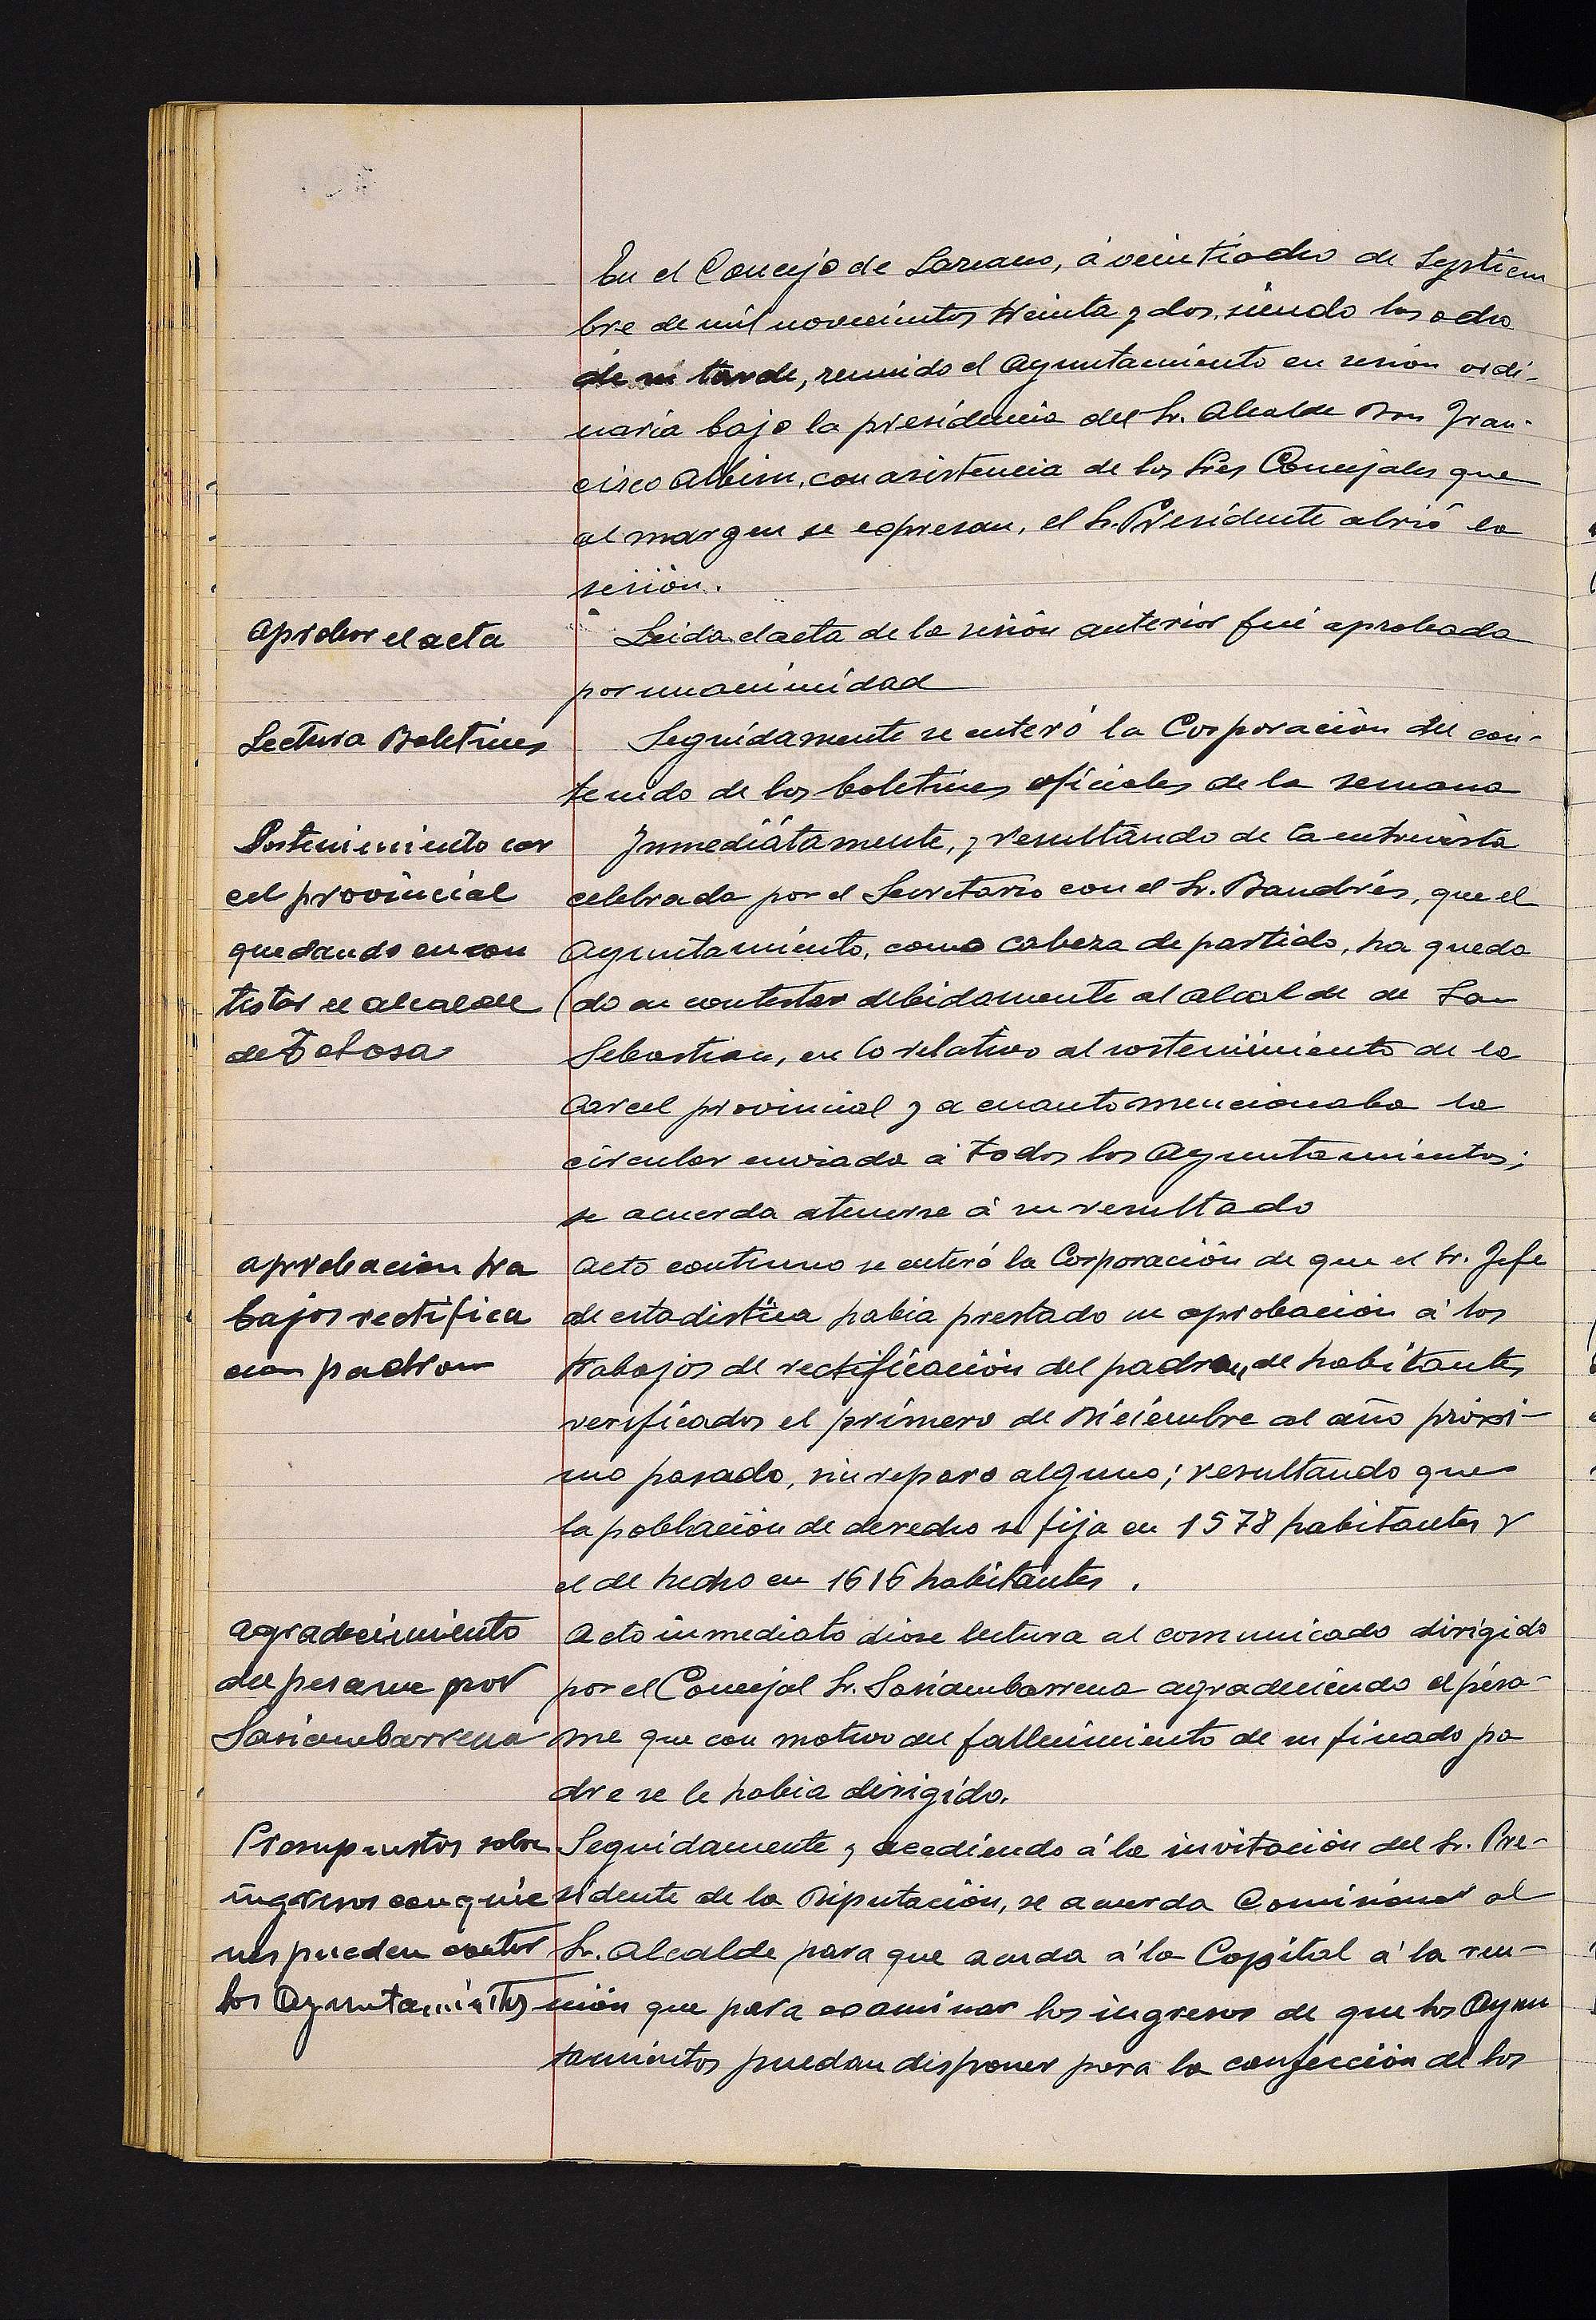 En el Concejo de Lazcano, á veintiocho de Septiem
bre de mil novecientos treinta y dos, siendo las ocho
de su tarde, reunido el Ayuntamiento en sesión ordi-
naria bajo la presidencia del Sr. Alcalde Don Fran-
cisco Albisu, con asistencia de los Sres Concejales que
al margen se expresan, el Sr. Presidente abrió la
sesión.
Aprobar el acta
Leida el acta de la sesión anterior fué aprobada
por unanimidad
Lectura Boletines
Seguidamente se enteró la Corporación del con-
tenido de los boletines oficiales de la semana
Sostenimiento car
cel provincial
quedando en con
testar el alcalde
de Tolosa
Inmediatamente, y resultando de la entrevista
celebrada por el Secretario con el Sr. Bandrés, que el
Ayuntamiento, como cabeza de partido, ha queda
do en contestar debidamente al alcalde de San
Sebastian, en lo relativo al sostenimiento de la
Carcel provincial y a cuanto mencionaba la
circular enviada á todos los Ayuntamientos;
se acuerda atenerse á su resultado
Aprobacion tra
bajos rectifica
cion padron
Acto continuo se enteró la Corporación de que el Sr. Jefe
de estadistica habia prestado su aprobación á los
trabajos de rectificación del padron de habitantes
verificados el primero de Diciembre al año próxi-
mo pasado, sin reparo alguno; resultando que
la población de derecho se fija en 1578 habitantes y
el de hecho en 1616 habitantes.
Agradecimiento
del pesame por
Sasiambarrena
Acto inmediato diose lectura al comunicado dirigido
por el Concejal Sr. Sasiambarrena agradeciendo el pésa-
me que con motivo del fallecimiento de su finado pa
dre se le habia dirigido.
Presupuestos sobre
ingresos con quie
nes pueden contar
los Ayuntamientos
Seguidamente y accediendo á la invitación del Sr. Pre-
sidente de la Diputación, se acuerda Comisionar al
Sr. Alcalde para que acuda á la Capital á la reu-
nión que para examinar los ingresos de que los Ayun
tamientos puedan disponer para la confección de los